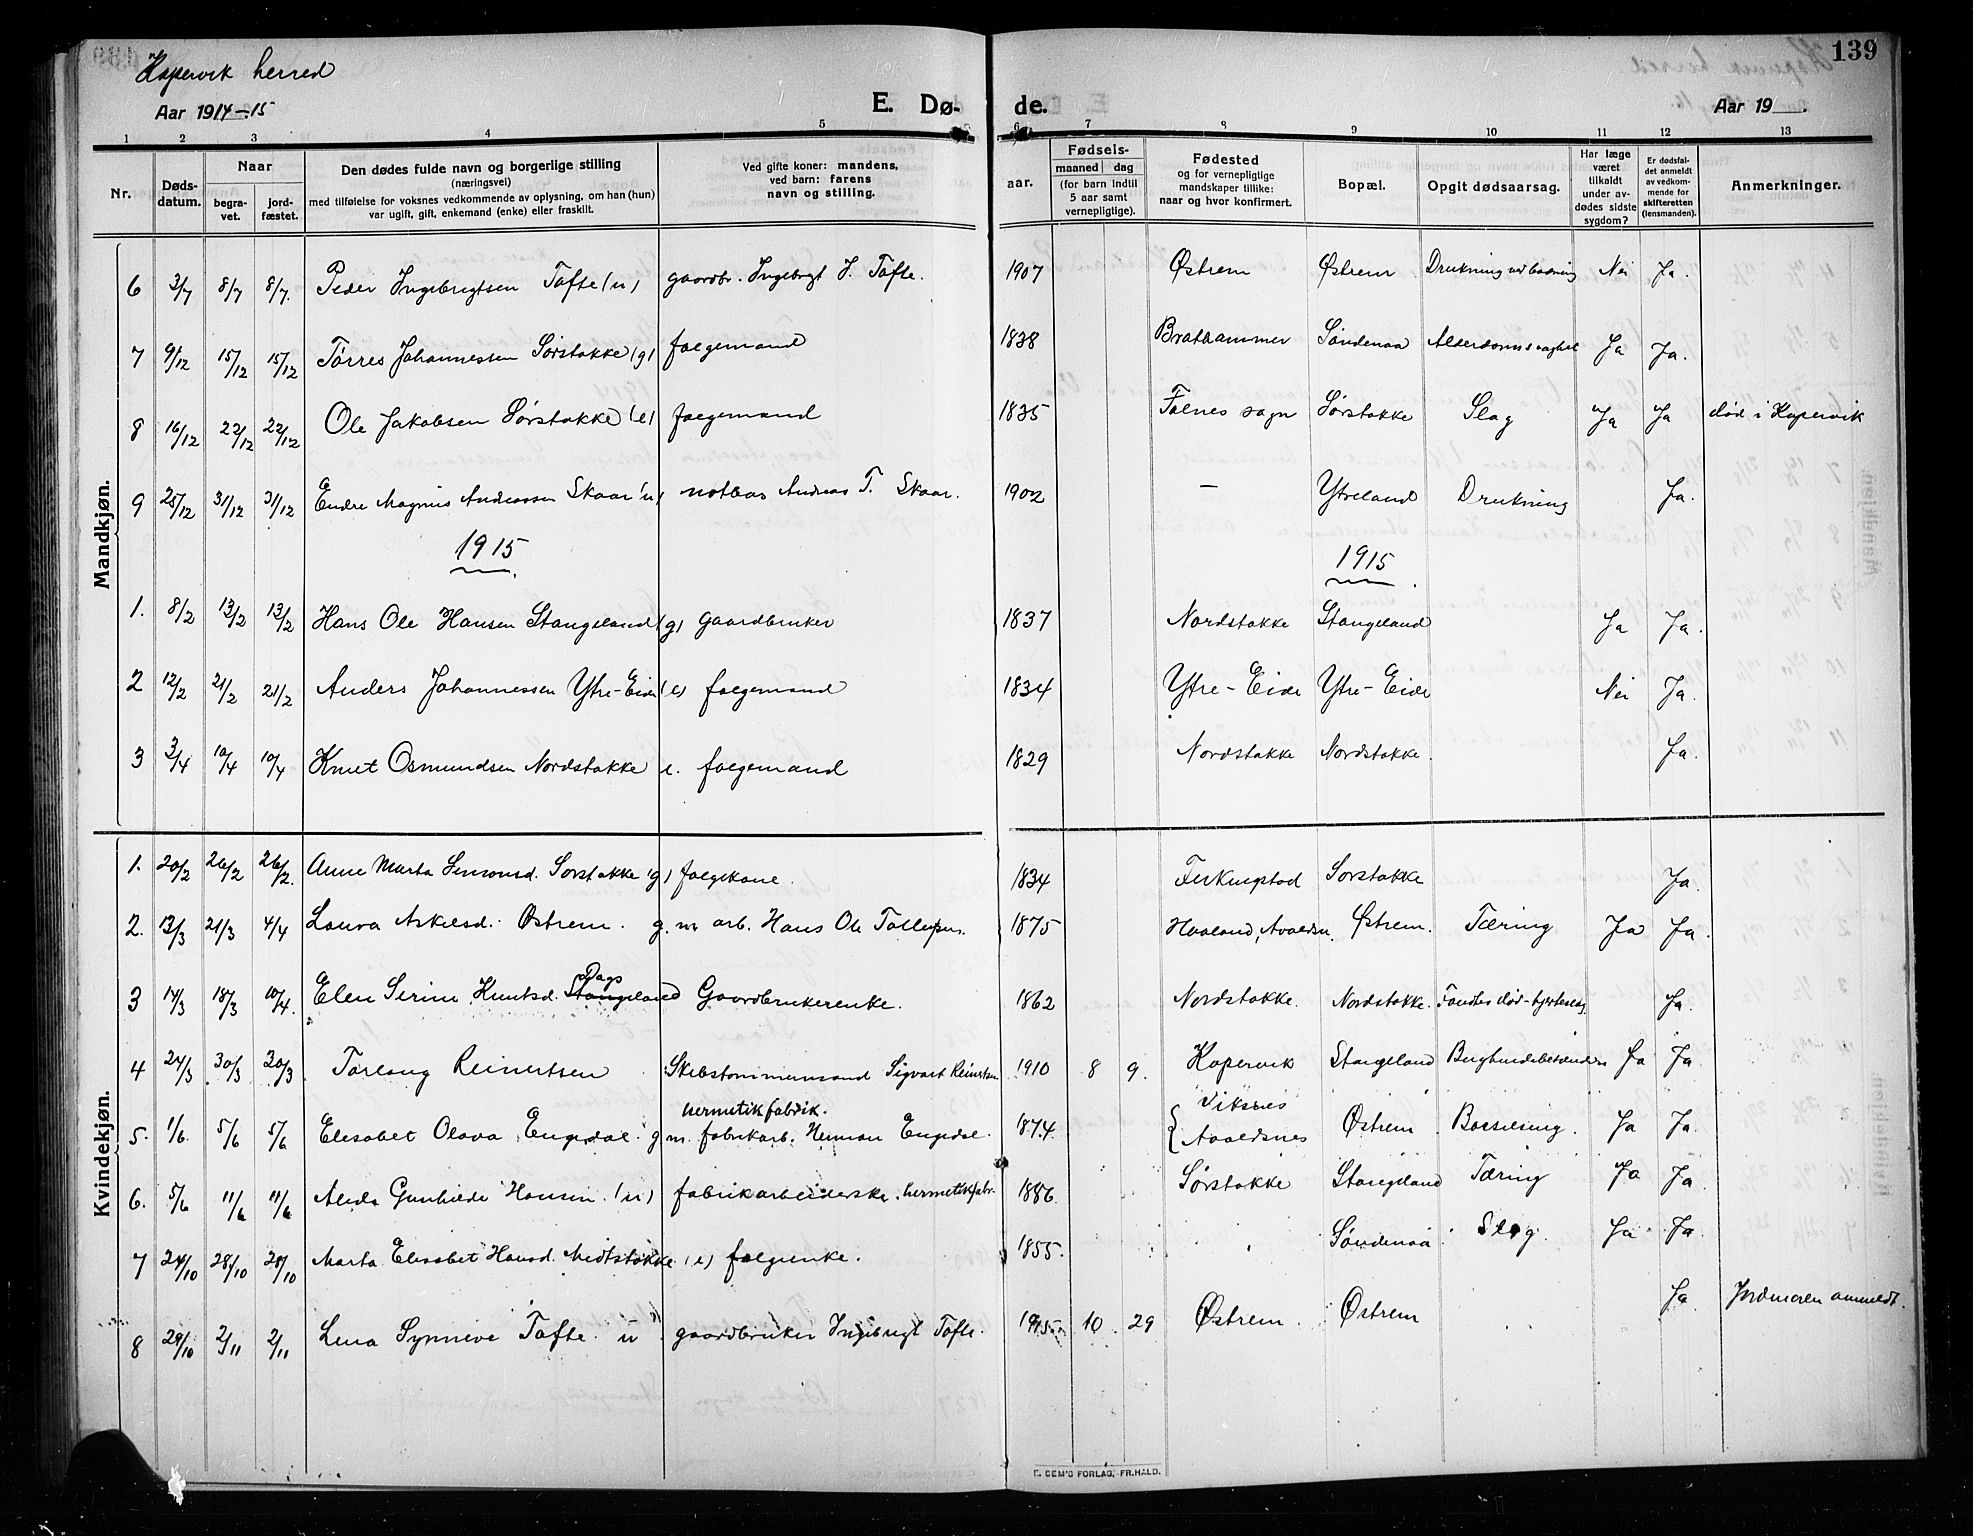 Kopervik herred
139
Aar 1914-15
E. Dø-
de.
Aar 19
1 2 3 4 5 6 7 8 9 10 11 12 13
Nr. Døds-datum. Naar begra-vet. jord-fæstet. Den dødes fulde navn og borgerlige stilling (næringsvei) med tilføielse for voksnes vedkommende av oplysning, om han (hun) var ugift, gift, enkemand (enke) eller fraskilt. Ved gifte koner: mandens, ved barn: farens navn og stilling. aar. Fødsels- maaned dag (for barn indtil 5 aar samt vernepligtige). Fødested og for vernepligtige mandskaper tillike: naar og hvor konfirmert. Bopæl. Opgit dødsaarsag. Har læge været tilkaldt under av-dødes sidste sygdom? Er dødsfal-det anmeldt av vedkom-mende for skifteretten (lensmanden). Anmerkninger.
Mandkjøn.
6 3/7 8/7 8/7. Peder Ingebrigtsen Tofte (u) gaardbr. Ingebrigt J. Tofte. 1907 Østrem Østrem Drukning ved badning Nei Ja.
7 9/12 15/12 15/12 Tørres Johannessen Sørstokke (g) folgemand 1838 Brathammer Søndenaa Alderdomssvaghet Ja Ja.
8 16/12 22/12 22/12 Ole Jakobsen Sørstokke (e) folgemand 1835 Falnes sogn Sørstokke Slag Ja Ja død i Kopervik
9 25/12 31/12 31/12 Endre Magnus Andreassen Skaar (u) notbas Andreas T. Skaar. 1902 — Ytreland Drukning Ja.
1915 1915
1. 8/2 13/2 13/2 Hans Ole Hansen Stangeland (g) gaardbruker 1837 Nordstokke Stangeland Ja Ja.
2 12/2 21/2 21/2 Anders Johannessen Ytre-Eide (e) folgemand 1834 Ytre-Eide Ytre-Eide Nei Ja.
3 3/4 10/4 10/4 Knut Osmundsen Nordstokke e. folgemand 1829 Nordstokke Nordstokke. Ja.
Kvindekjøn.
1. 20/2 26/2 26/2. Anne Marta Simonsd. Sørstokke (g) folgekone. 1834 Ferkingstad Sørstokke Ja.
2. 13/3 21/3 4/4 Laura Askilsd. Østrem. g. m. arb. Hans Ole 1875 Haaland, Avaldsn. Østrem. Tæring Ja Ja.
3 14/3 18/3 10/4 Elen Serine Knutsd. Stangeland Dags Gaardbrukerenke. 1862 Nordstokke. Nordstokke. Ja.
4 24/3 30/3 30/3 Torlaug Reinertsen Skibstømmermand Sigvart Reinertsen 1910 8 9. Kopervik Stangeland Ja Ja
5. 1/6. 5/6 5/6 Elisabet Olava Engedal. g m. fabrikarb. Herman Engedal. hermetikfabrik. 1874 Viksnes Avaldsnes Østrem Ja Ja.
6. 5/6 11/6 11/6 Gunhilde Hansen. (u) fabrikarbeiderske. hermetikfabr. 1886 Sørstokke Stangeland Tæring Ja Ja.
7 24/10 28/10 28/10 Marta Elisabet Hansd. Midtstokke (e) folgeenke. 1855. Søndenaa Slag. Ja Ja.
8 29/10 2/11 2/11 Lena Synneve Tofte. u gaardbruker Ingebrigt Tofte. 1915 10 29 Østrem. Østrem Ja Jordmoren anmeldt.
E. SEM'S FORLAG, FR.HALD.